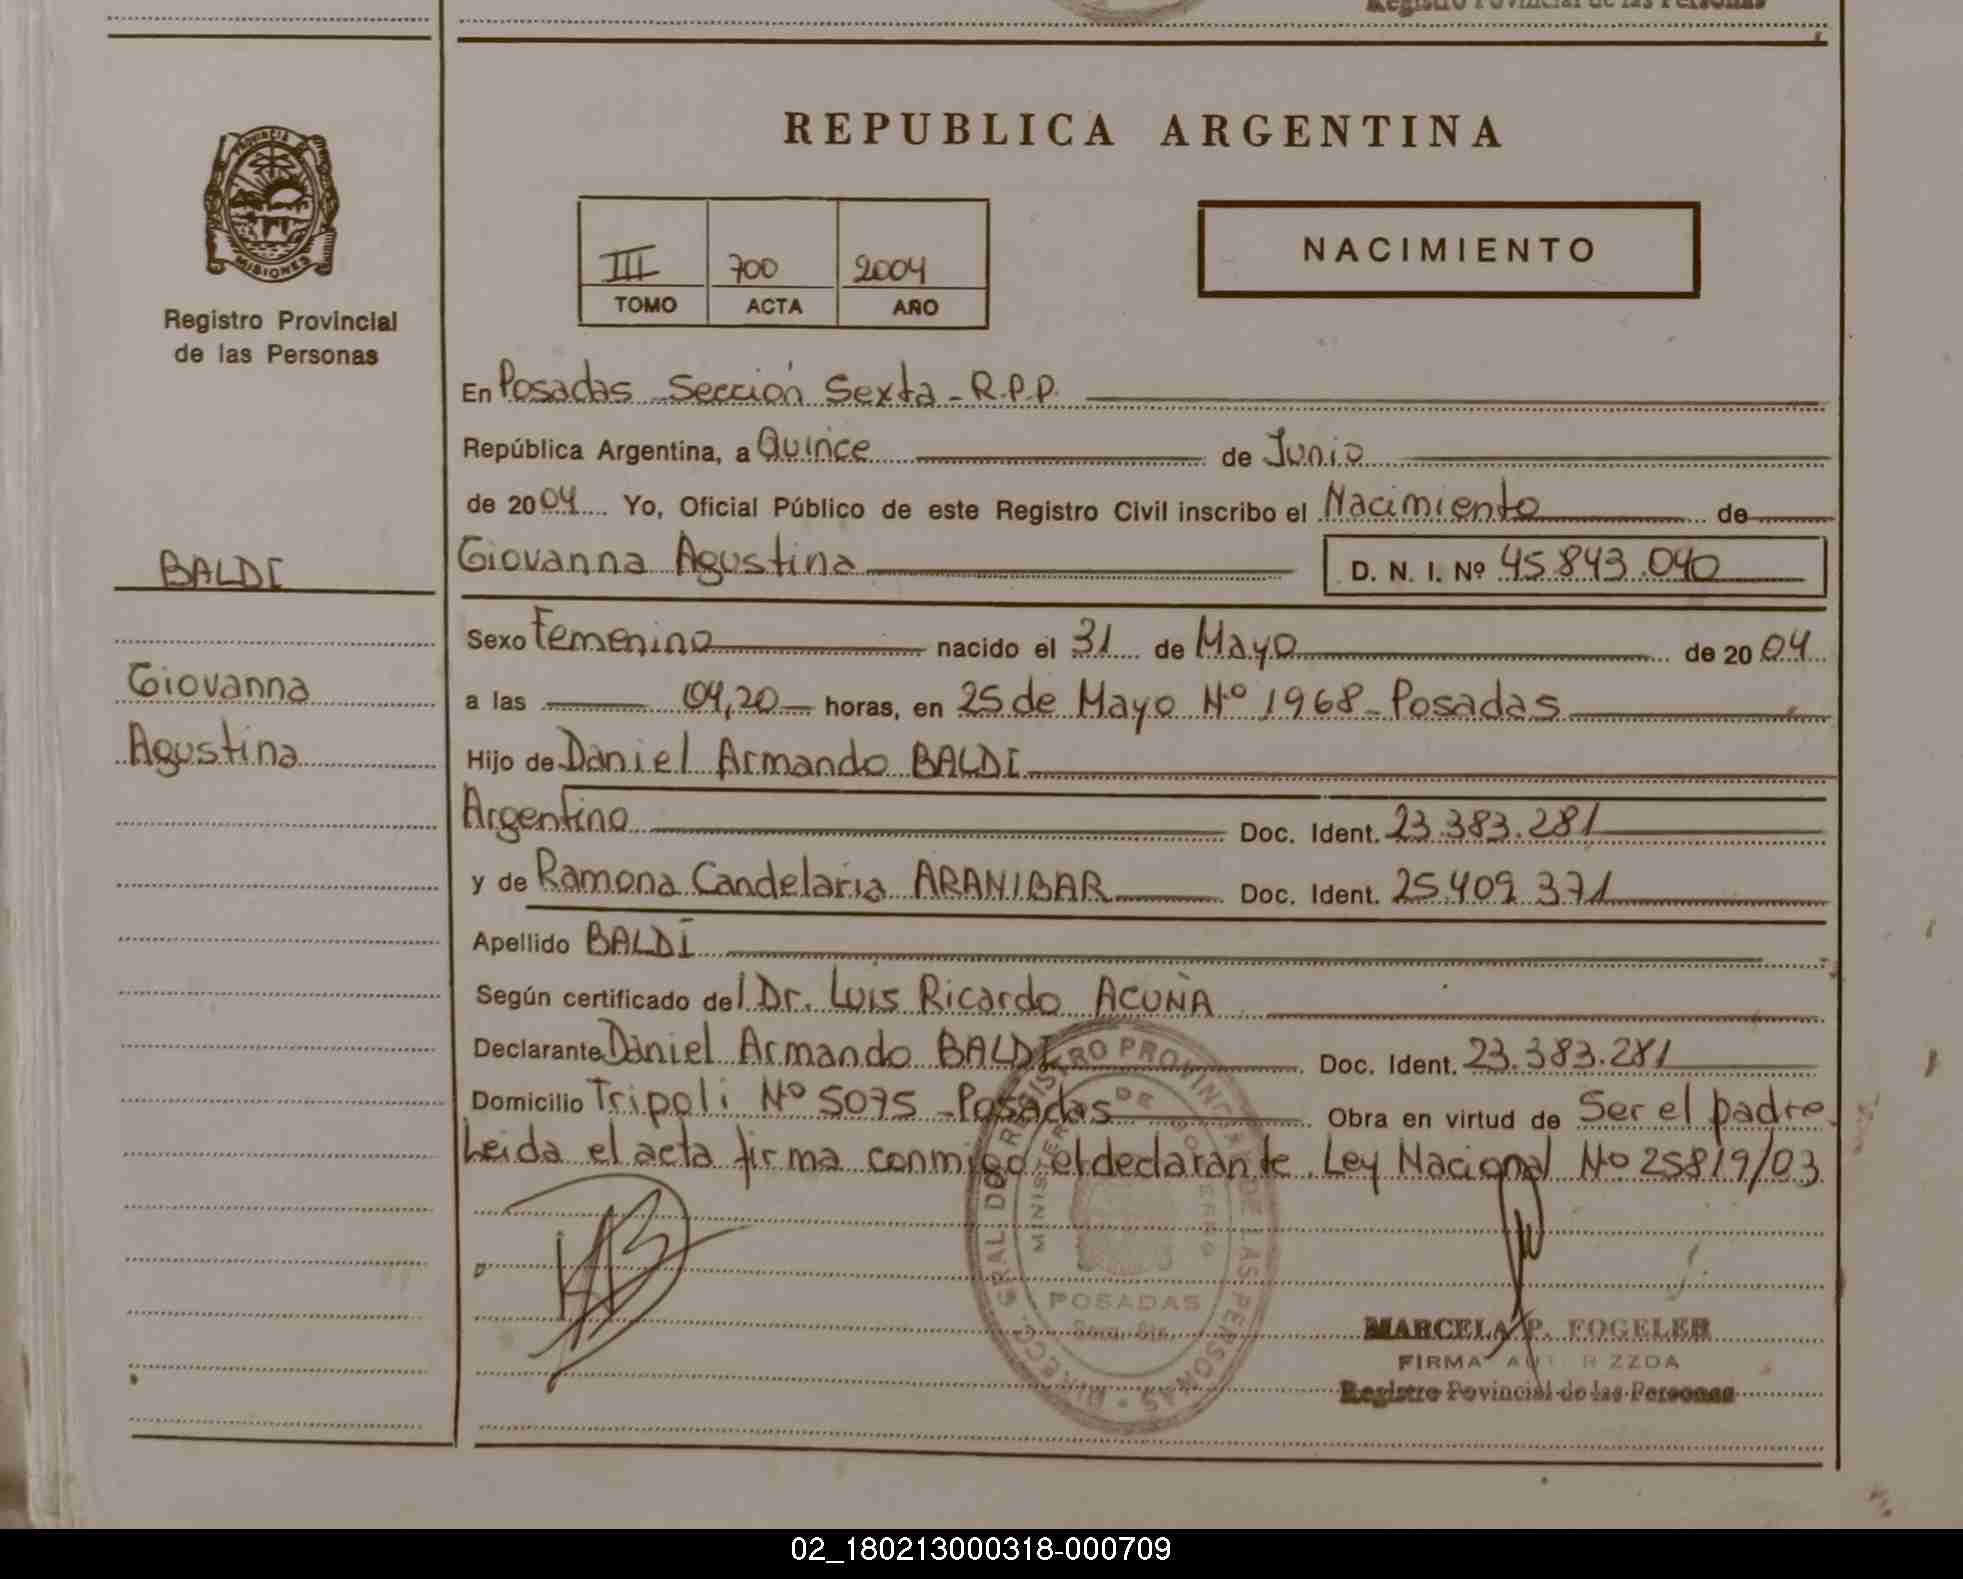 Registro Provincial de las Personas
REPUBLICA ARGENTINA
PROVINCIA DE
MISIONES
Registro Provincial
de las Personas
III 700 2004
TOMO ACTA AÑO
NACIMIENTO
En Posadas Sección Sexta - R.P.P.
República Argentina, a Quince de Junio
de 2004 Yo, Oficial Público de este Registro Civil inscribo el Nacimiento de
BALDI
Giovanna Agustina D. N. I. Nº 45.843.040
Sexo Femenino nacido el 31 de Mayo de 2004
Giovanna
a las 04,20 horas, en 25 de Mayo Nº 1968 - Posadas
Agustina
Hijo de Daniel Armando BALDI
Argentino Doc. Ident. 23.383.281
y de Ramona Candelaria ARANIBAR Doc. Ident. 25.409.371
Apellido BALDI
Según certificado del Dr. Luis Ricardo ACUÑA
Declarante Daniel Armando BALDI Doc. Ident. 23.383.281
Domicilio Tripoli Nº 5075 - Posadas Obra en virtud de Ser el padre
Leida el acta firma conmigo el declarante. Ley Nacional Nº 25819/03
DIRECC. GRAL DO REGISTRO PROVINCIAL DE LAS PERSONAS
MINISTERIO DE GOBIERNO
POSADAS
MARCELA P. FOGELER
FIRMA AUTORIZZDA
Registro Povincial de las Personas
02_180213000318-000709